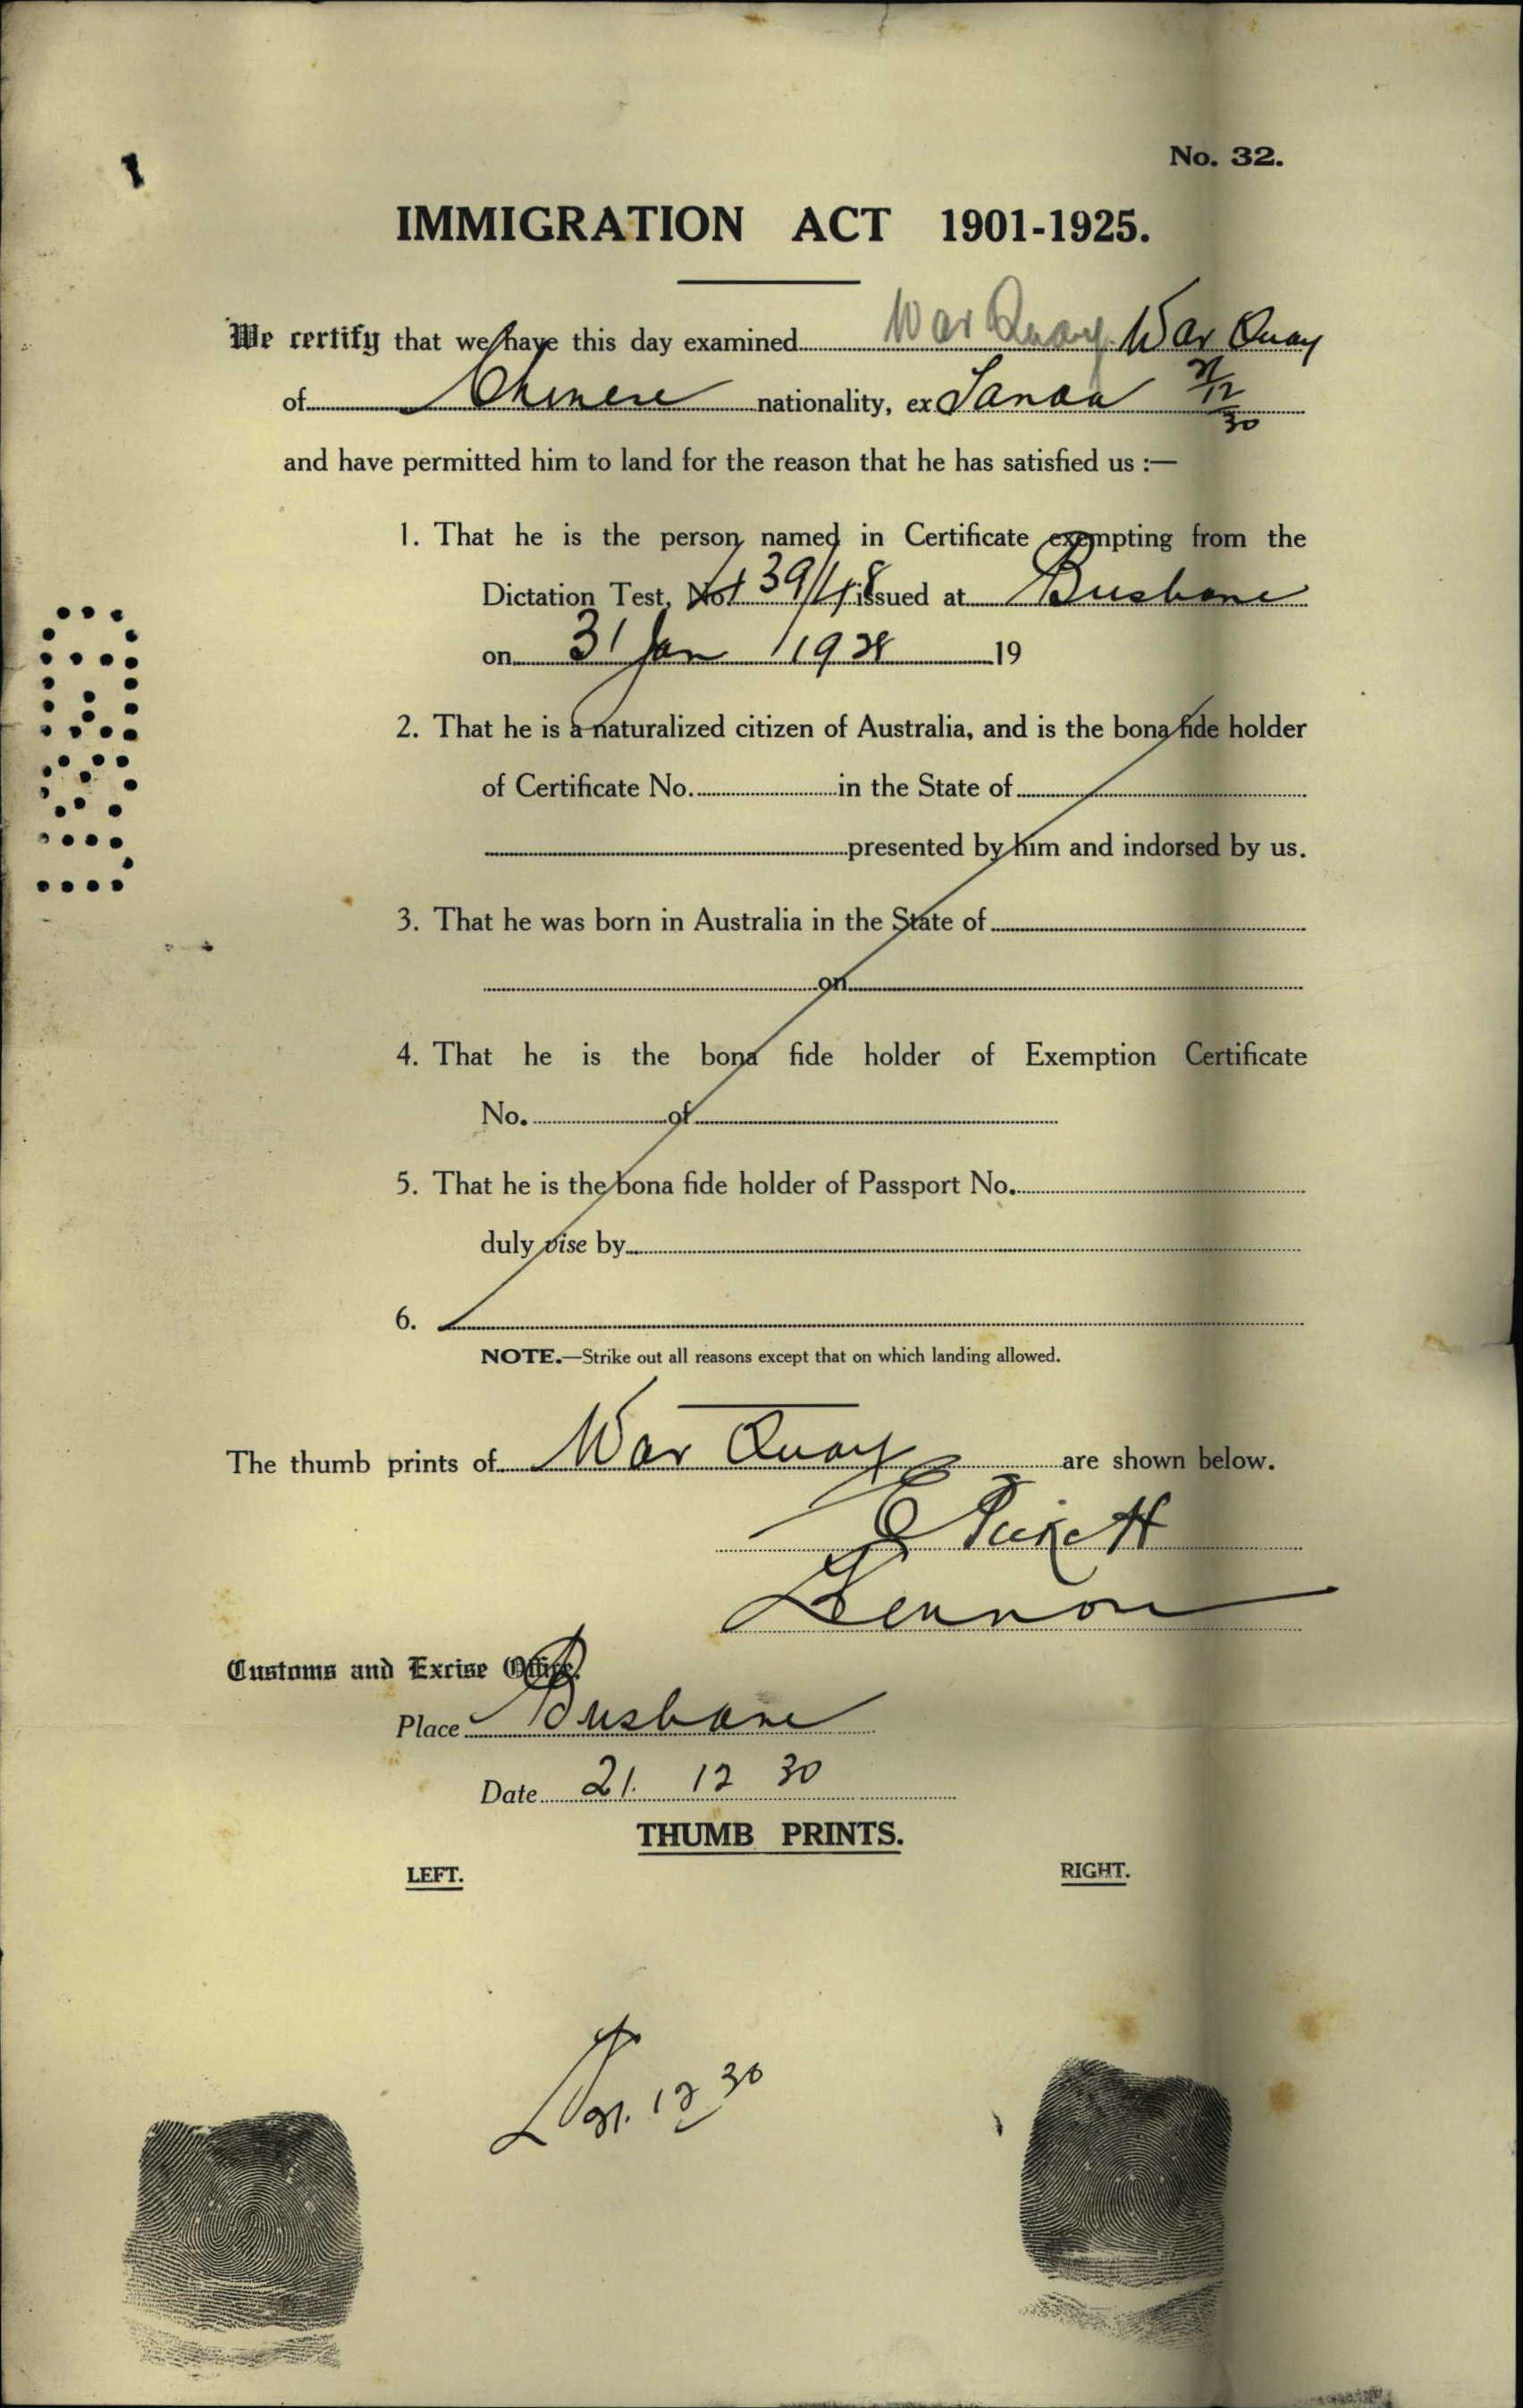 No. 32.
IMMIGRATION ACT 1901-1925.
We certify that we have this day examined War Quay. War Quay
of Chinese nationality, ex Tanda 21/12/30
and have permitted him to land for the reason that he has satisfied us :—
1. That he is the person named in Certificate exempting from the
Dictation Test, No. issued at Brisbane
on 31 Jan 1928 19
2. That he is a naturalized citizen of Australia, and is the bona fide holder
of Certificate No. in the State of
presented by him and indorsed by us.
3. That he was born in Australia in the State of
on
4. That he is the bona fide holder of Exemption Certificate
No. of
5. That he is the bona fide holder of Passport No.
duly vise by
6.
NOTE.—Strike out all reasons except that on which landing allowed.
The thumb prints of War Quay are shown below.
Lennon
Customs and Excise Office,
Place Brisbane
Date 21. 12 30
THUMB PRINTS.
LEFT. RIGHT.
21. 12 30